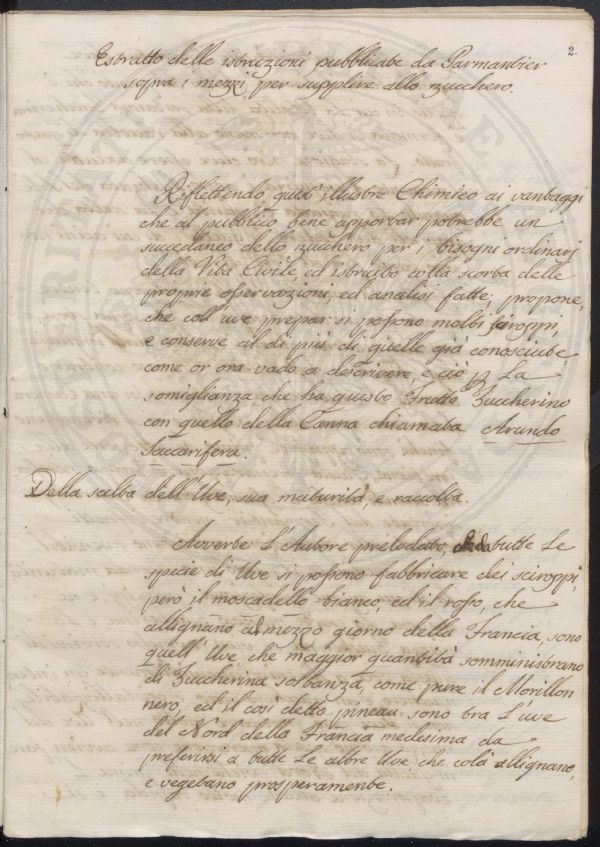 2.
Estratto delle istruzioni pubblicate da Parmantier
sopra i mezzi per supplire allo zucchero.
Riflettendo quest' illustre Chimico ai vantaggi
che al pubblico bene apportar potrebbe un
succedaneo dello zucchero per i bisogni ordinarj
della Vita Civile, ed istruito colla scorta delle
proprie osservazioni, ed analisi fatte; propone,
che coll' uve prepar: si possono molti siroppi,
e conserve al di più di quelle già conosciute,
come or ora vado a descrivere, e ciò La
somiglianza che ha questo Frutto Zuccherino
con quello della Canna chiamata Arundo
Saccarifera.
Della scelta dell' Uve, sua maturità, e raccolta.
Avverte L'Autore prelodato, tutte Le
specie di Uve si possono fabbricare dei sciroppi,
però il moscadello bianco, ed il rosso, che
allignano al mezzo giorno della Francia, sono
quell' Uve, che maggior quantità somministrano
di Zuccherina sostanza, come pure il Morillon
nero, ed il così detto pineau sono tra L'uve
del Nord della Francia medesima da
preferirsi a tutte Le altre Uve che colà allignano,
e vegetano prosperamente.